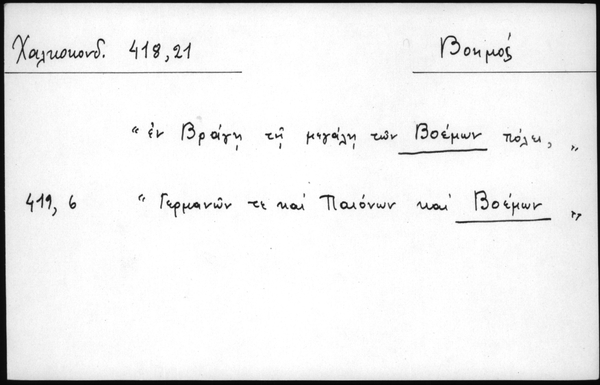 Χαλκοκονδ. 418,21 Βοημός
“ ἐν Βράγῃ τῇ μεγάλῃ τῶν Βοέμων πόλει, „
419, 6 “ Γερμανῶν τε καὶ Παιόνων καὶ Βοέμων „